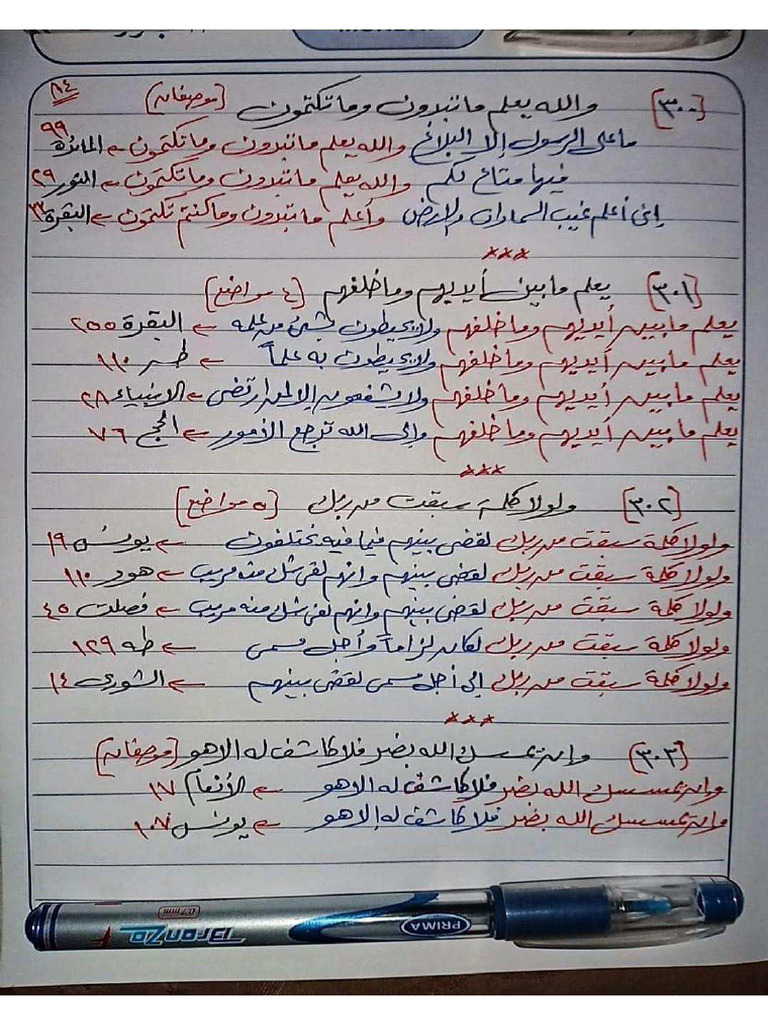 ٨٤
[٣٠٠] والله يعلم ما تبدون وما تكتمون [موضعان]
ما على الرسول إلا البلاغ والله يعلم ما تبدون وما تكتمون ← المائدة ٩٩
فيها متاع لكم والله يعلم ما تبدون وما تكتمون ← النور ٢٩
إنى أعلم غيب السماوات والارض وأعلم ما تبدون وما كنتم تكتمون ← البقرة ٣٣
***
[٣٠١] يعلم ما بين أيديهم وما خلفهم [٤ مواضع]
يعلم ما بين أيديهم وما خلفهم ولا يحيطون بشئ من علمه ← البقرة ٢٥٥
يعلم ما بين أيديهم وما خلفهم ولا يحيطون به علماً ← طه ١١٠
يعلم ما بين أيديهم وما خلفهم ولا يشفعون إلا لمن ارتضى ← الانبياء ٢٨
يعلم ما بين أيديهم وما خلفهم وإلى الله ترجع الأمور ← الحج ٧٦
***
[٣٠٢] ولولا كلمة سبقت من ربك [٥ مواضع]
ولولا كلمة سبقت من ربك لقضى بينهم فيما فيه يختلفون ← يونس ١٩
ولولا كلمة سبقت من ربك لقضى بينهم وانهم لفى شك منه مريب ← هود ١١٠
ولولا كلمة سبقت من ربك لقضى بينهم وانهم لفى شك منه مريب ← فصلت ٤٥
ولولا كلمة سبقت من ربك لكان لزاماً وأجل مسمى ← طه ١٢٩
ولولا كلمة سبقت من ربك إلى أجل مسمى لقضى بينهم ← الشورى ١٤
***
[٣٠٣] وان يمسسك الله بضر فلا كاشف له الا هو [موضعان]
وان يمسسك الله بضر فلا كاشف له الا هو ← الأنعام ١٧
وان يمسسك الله بضر فلا كاشف له إلا هو ← يونس ١٠٧
PRIMA
BronZo
0.7mm